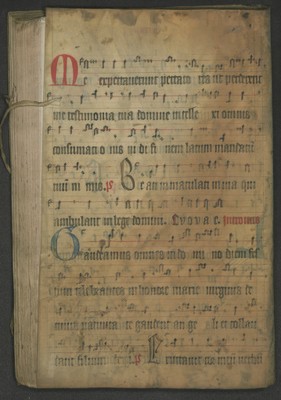 Me expectaverunt peccato res ut perderent
me testimonia tua domine intelle xi omnis
consumati o nis vi di fi nem latum mandatu
tuu
Be ati immaculati in via qui
ambulant in lege domini. Evovae.
Gaudeamus omnes in do mi no diem fes
tum celebrantes in honore marie virginis de
gaudent an ge li et collau
dant filium dei
Eructavit cor meu verbu